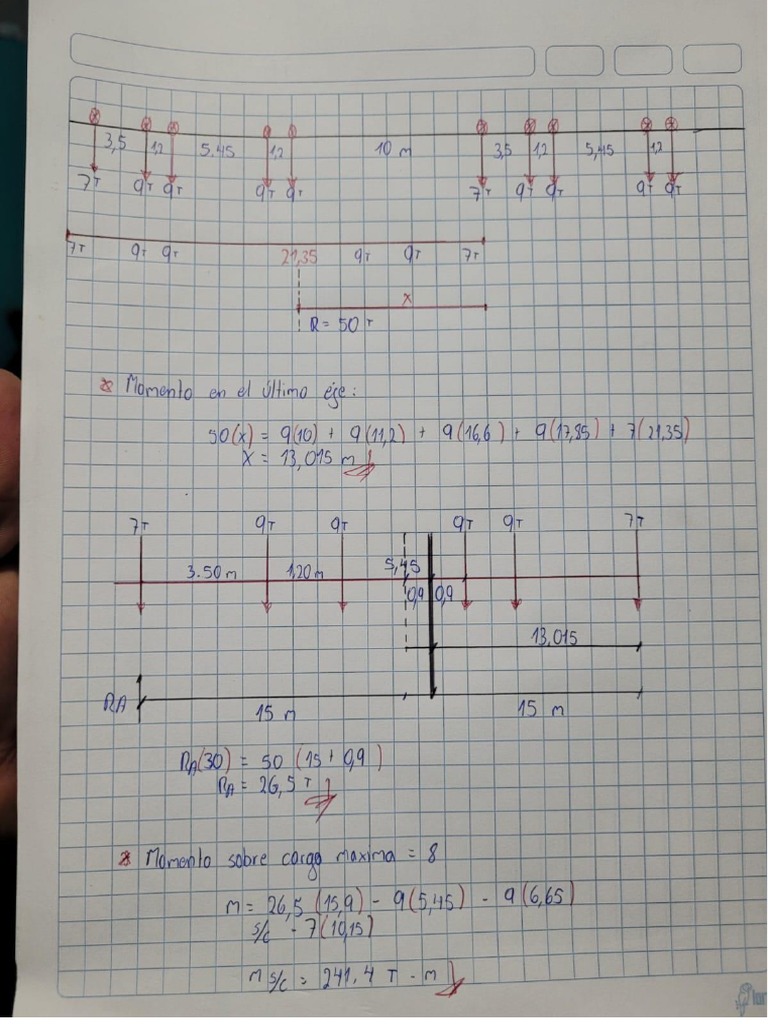 3,5 1,2 5.45 1,2 10 m 3,5 1,2 5,45 1,2
7T 9T 9T 9T 9T 7T 9T 9T 9T 9T
7T 9T 9T 21,35 9T 9T 7T
x
R = 50 T
* Momento en el último eje:
50(x) = 9(10) + 9(11,2) + 9(16,6) + 9(17,85) + 7(21,35)
x = 13,015 m
7T 9T 9T 9T 9T 7T
3.50 m 1,20 m 5,45
0,9 0,9
13,015
RA
15 m 15 m
RA(30) = 50 (15 + 0,9)
RA = 26,5 T
* Momento sobre carga maxima = 8
m = 26,5 (15,9) - 9(5,45) - 9(6,65)
s/c - 7(10,15)
m s/c = 241.4 T - m